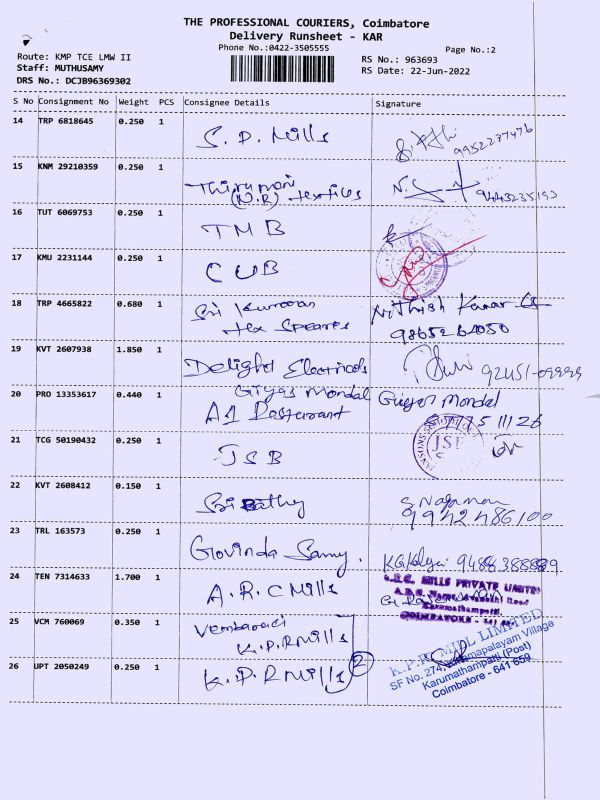 THE PROFESSIONAL COURIERS, Coimbatore
Delivery Runsheet - KAR
Phone No.:0422-3505555
Page No.:2
Route: KMP TCE LMW II
Staff: MUTHUSAMY
DRS No.: DCJB96369302
RS No.: 963693
RS Date: 22-Jun-2022
S No Consignment No Weight PCS Consignee Details Signature
14 TRP 6818645 0.250 1 S.P. Mills
9952277476
15 KNM 29210359 0.250 1 Thirumani
(N.R) textiles
9443235193
16 TUT 6069753 0.250 1 TMB
17 KMU 2231144 0.250 1 CUB
18 TRP 4665822 0.680 1 Sri Kumaran Nithish Kumar
tex Speares 9865264050
19 KVT 2607938 1.850 1 Delight Electricals 92451-09999
20 PRO 13353617 0.440 1 Giyas Mondal Giyas Mondal
A1 Restaurant 87775 11126
21 TCG 50190432 0.250 1 JSB JSB
22 KVT 2608412 0.150 1 Sri
9942486100
23 TRL 163573 0.250 1 Govinda Samy. 9488388889
24 TEN 7314633 1.700 1 A.R.C Mills MILLS PRIVATE LIMITED
Road
Karumathampatti,
COIMBATORE - 641
25 VCM 760069 0.350 1
K.P.R Mills
26 UPT 2050249 0.250 1 K.P.R Mills 2
K.P.R. MILL LIMITED
SF No. 274, Village
Karumathampatti (Post)
Coimbatore - 641 659